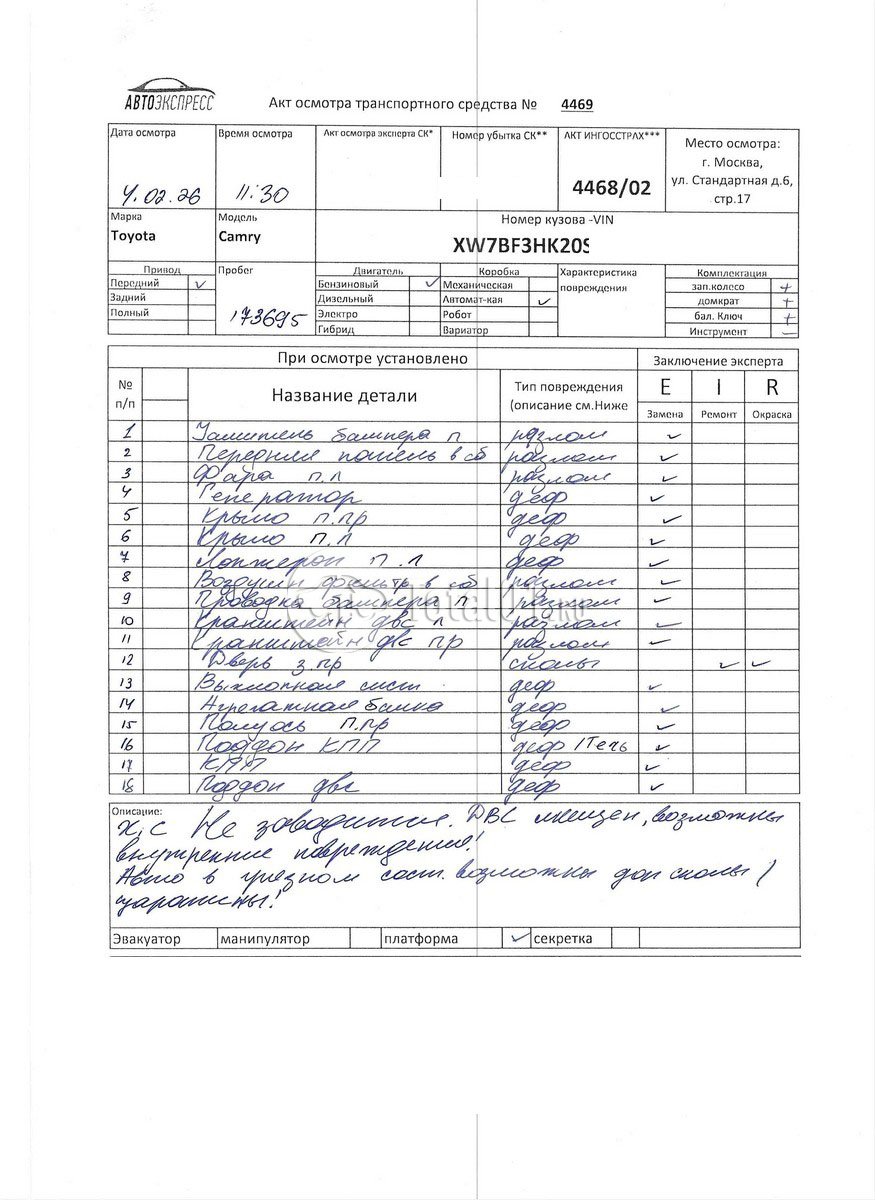 АВТОЭКСПРЕСС
Акт осмотра транспортного средства № 4469
Дата осмотра Время осмотра Акт осмотра эксперта СК* Номер убытка СК** АКТ ИНГОССТРАХ*** Место осмотра:
г. Москва,
4.02.26 11:30 4468/02 ул. Стандартная д.6,
стр.17
Марка Модель Номер кузова -VIN
Toyota Camry XW7BF3HK20S
Привод Пробег Двигатель Коробка Характеристика Комплектация
Передний ✓ Бензиновый ✓ Механическая повреждения зап.колесо +
Задний Дизельный Автомат-кая ✓ домкрат +
Полный 173695 Электро Робот бал. Ключ +
Гибрид Вариатор Инструмент –
При осмотре установлено Заключение эксперта
№ п/п Название детали Тип повреждения (описание см.Ниже E I R
Замена Ремонт Окраска
1 Усилитель бампера п разлом ✓
2 Передняя панель в сб разлом ✓
3 Фара п.л разлом ✓
4 Генератор деф ✓
5 Крыло п.пр деф ✓
6 Крыло п.л деф ✓
7 Лонжерон п.л деф ✓
8 Воздушн фильтр в сб разлом ✓
9 Проводка бампера п разлом ✓
10 Кранштейн двс л разлом ✓
11 Кранштейн двс пр разлом ✓
12 Дверь з.пр сколы ✓ ✓
13 Выхлопная сист. деф ✓
14 Агрегатная балка деф ✓
15 Полуось п.пр деф ✓
16 Поддон КПП деф / Течь ✓
17 КПП деф ✓
18 Поддон двс деф ✓
Total
Описание:
Х/С Не заводится. ДВС смещен, возможны
внутренние повреждения!
Авто в грязном сост. возможны доп сколы /
царапины!
Эвакуатор манипулятор платформа ✓ секретка